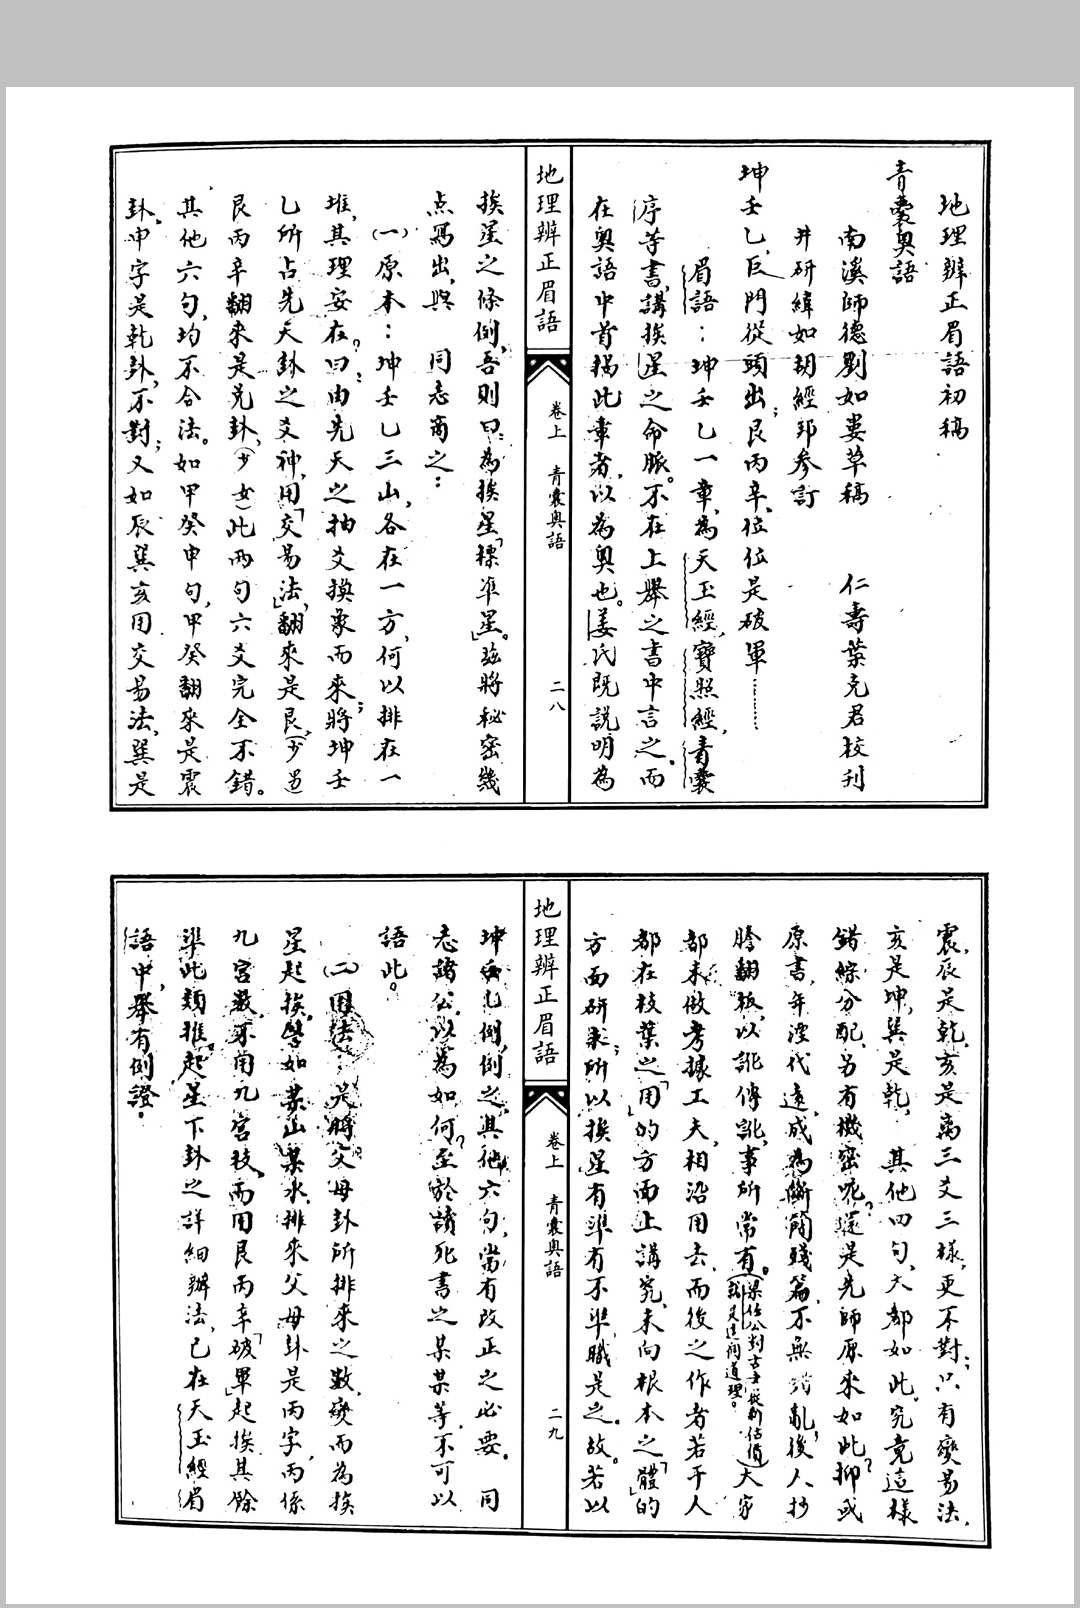 地理辨正眉語初稿
青囊奧語
南溪師德劉如婁草稿　仁壽葉克君校刊
井研緯如胡經邦參訂
坤壬乙，巨門從頭出；艮丙辛，位位是破軍………
眉語：坤壬乙一章，為天玉經，寶照經，青囊
序等書，講挨星之命脈。不在上舉之書中言之。而
在奧語中首揭此章者，以為奧也。姜氏既説明為
地理辨正眉語
卷上　青囊奧語
二八
挨星之條例，吾則曰：為挨星「標準星」。茲將秘密幾
点寫出，與　同志商之：
㈠原本：坤壬乙三山，各在一方，何以排在一
堆，其理安在？曰：由先天之抽爻換象而來；將坤壬
乙所占先天卦之爻神，用「交易法」，翻來是艮，（少男）
艮丙辛翻來是兑卦，（少女）此兩句六爻完全不錯。
其他六句，均不合法。如甲癸申句，甲癸翻來是震
卦，申字是乾卦，不對；又如辰巽亥用交易法，巽是
震，辰是乾，亥是离三爻三樣，更不對；只有變易法，
亥是坤，巽是乾，其他四句，大都如此，究竟這樣
錯綜分配，另有機密呢？還是先師原來如此？抑或
原書，年湮代遠，成為斷簡殘篇，不無錯亂，後人抄
謄翻板，以訛傳訛，事所常有。（梁任公對古書從新估價就是這個道理。）大家
都未做考據工夫，相沿用去，而後之作者若干人
都在枝葉之「用」的方面上講究，未向根本之「體」的
方面研求；所以挨星有準有不準，職是之。故。若以
地理辨正眉語
卷上　青囊奧語
二九
坤壬乙例，例之，其他六句，當有改正之必要。同
志諸公，以為如何？至於讀死書之某某等，不可以
語此。
㈡用法：是將父母卦所排來之數，變而為挨
星起挨，譬如某山某水，排來父母卦是丙字，丙係
九宮數不用九宮技，而用艮丙辛「破軍」起挨其餘
準此類推，起星下卦之詳細辦法，已在天玉經眉
語中，舉有例證。